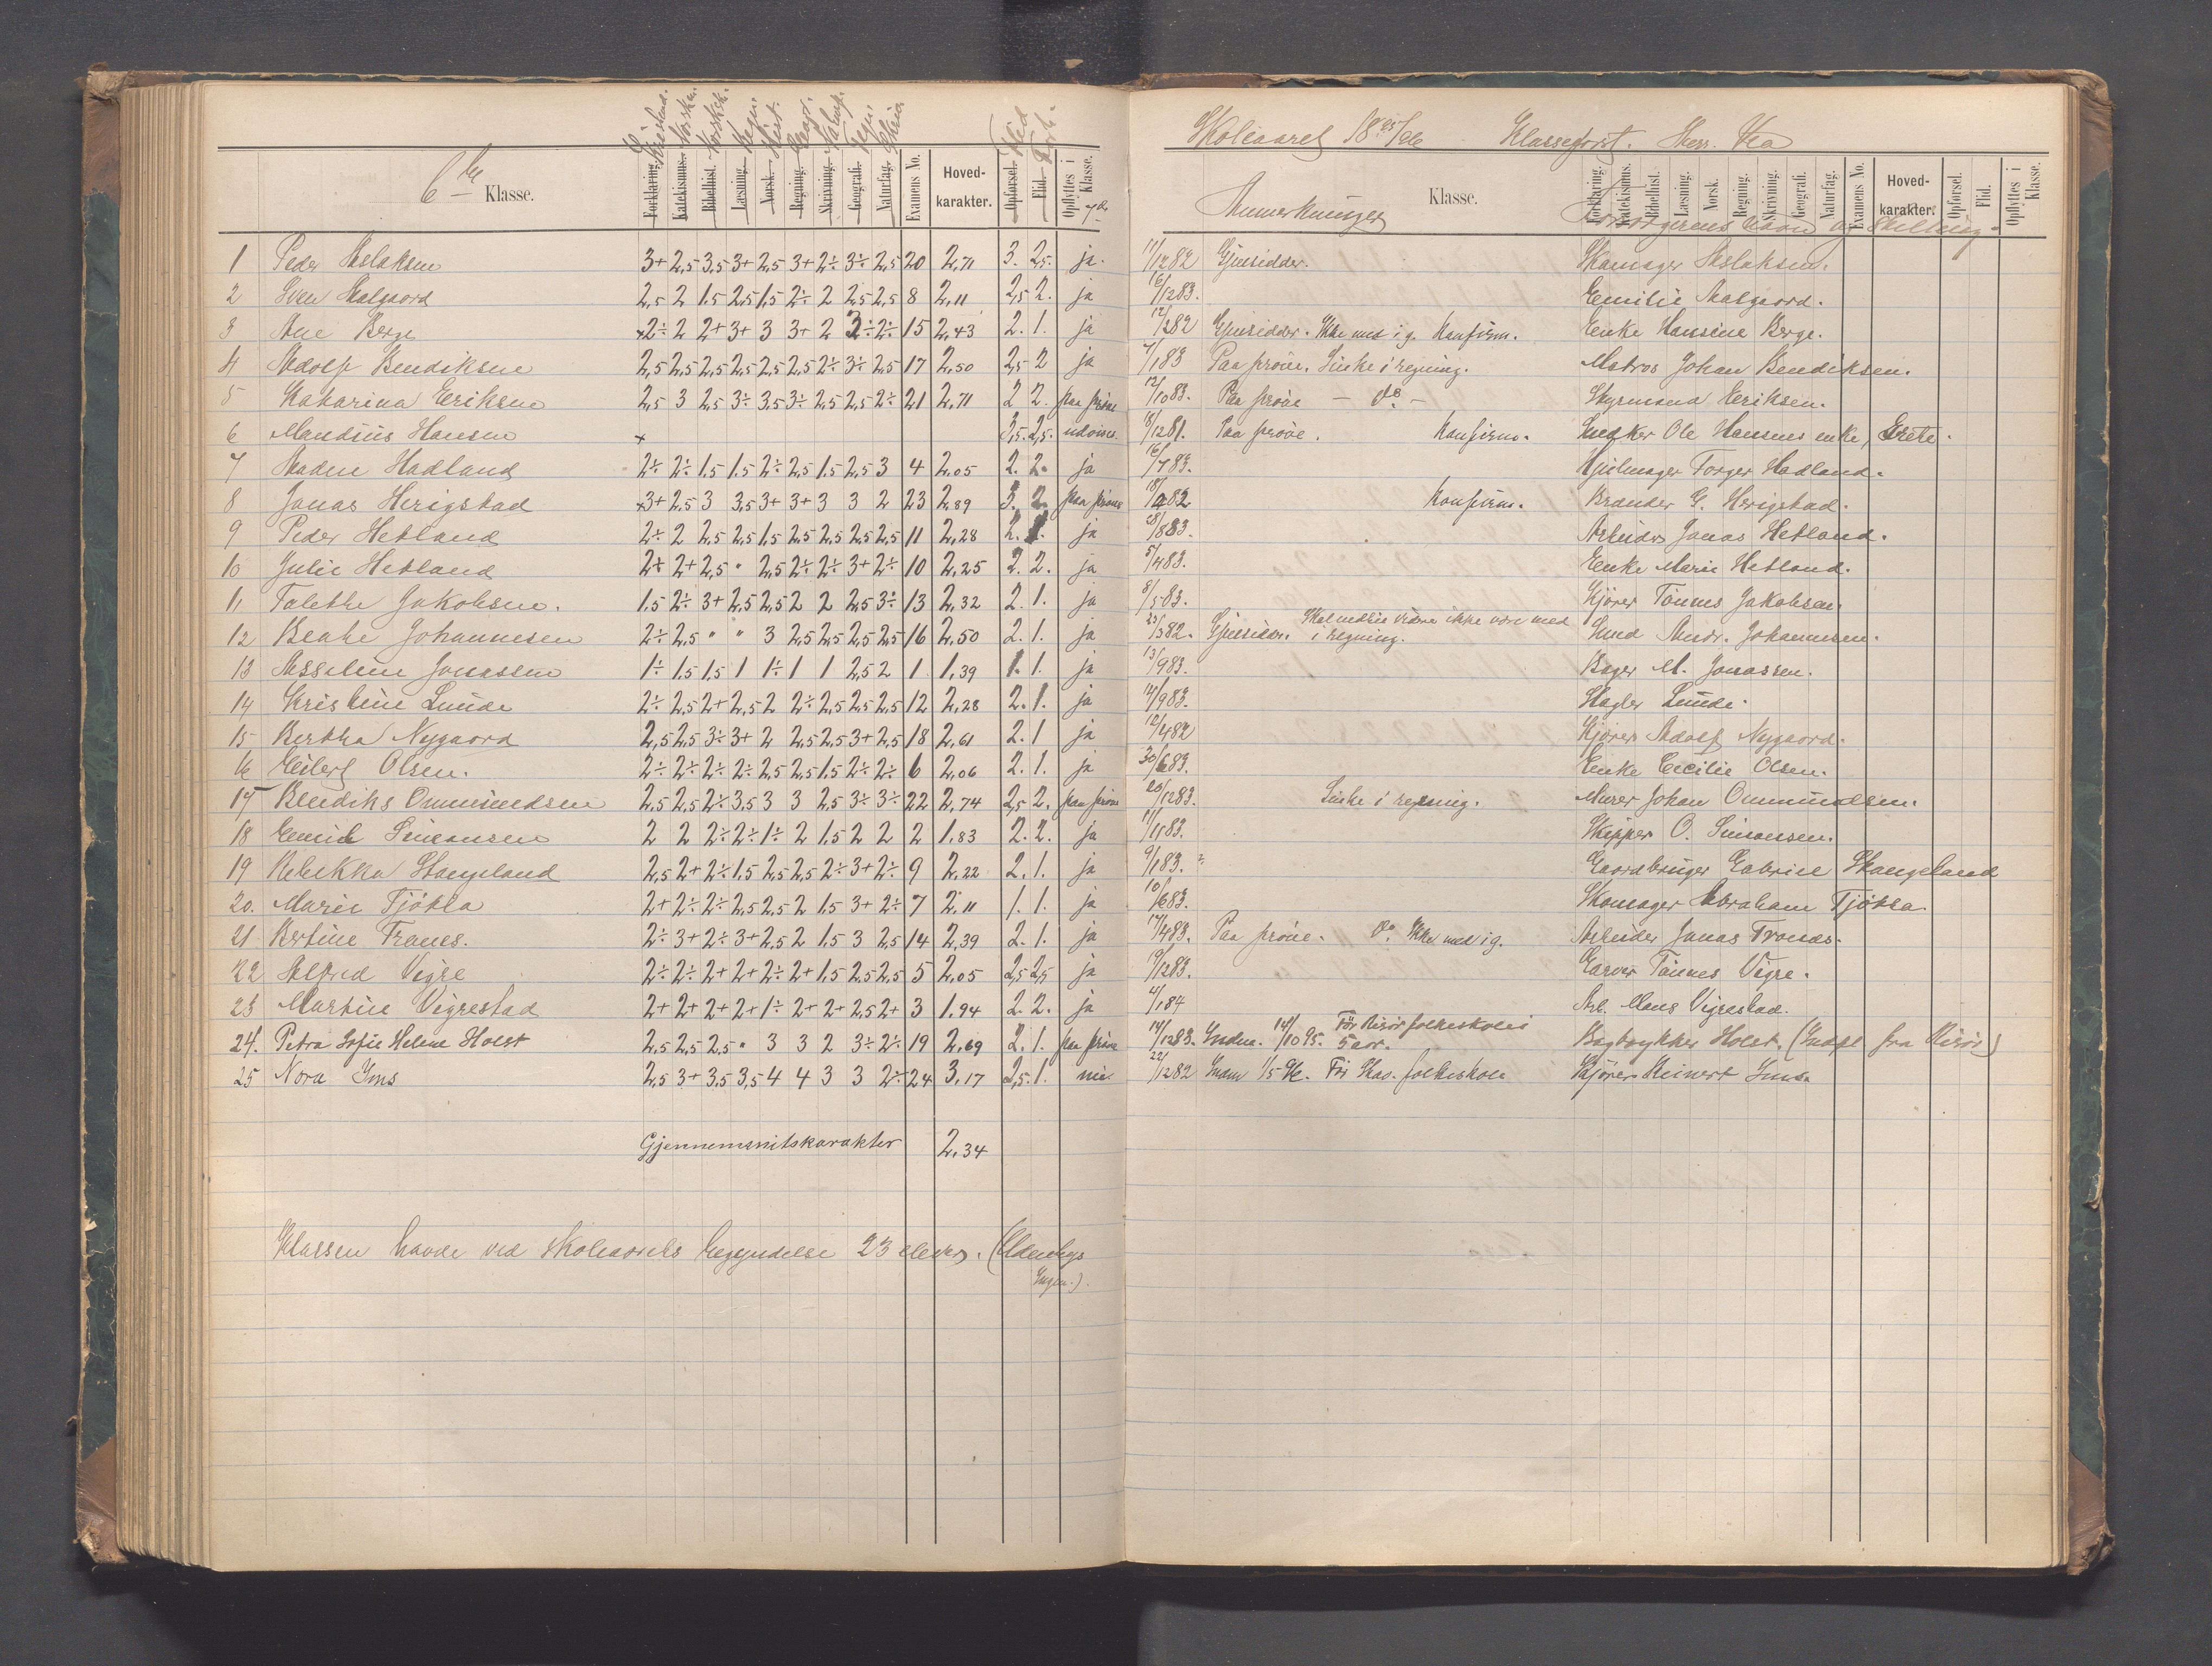 6te Klasse.
Forklaring. Katekismus. Bibelhist. Læsning. Norsk. Regning. Skrivning. Geografi. Naturfag. Examens No. Hoved-karakter. Opførsel. Flid. Opflyttes i 7de Klasse.
1 Peder Aslaksen 3+ 2,5 3,5 3+ 2,5 3+ 2÷ 3÷ 2,5 20 2,71 3. 2,5. ja.
2 Sven Aalgaard 2,5 2 1,5 2,5 1,5 2÷ 2 2,5 2,5 8 2,11 2,5 2. ja
3 Ane Berge +2÷ 2 2+ 3+ 3 3+ 2 3÷ 2÷ 15 2,43 2. 1. ja
4 Adolf Bendiksen 2,5 2,5 2,5 2,5 2,5 2,5 2÷ 3÷ 2,5 17 2,50 2,5 2 ja
5 Katarina Eriksen 2,5 3 2,5 3÷ 3,5 3÷ 2,5 2,5 2÷ 21 2,71 2 2. paa prøve
6 Mandius Hansen + 3,5. 2,5. udvist.
7 Maden Hadland 2÷ 2÷ 1,5 1,5 2÷ 2,5 1,5 2,5 3 4 2,05 2. 2. ja
8 Jonas Herigstad +3+ 2,5 3 3,5 3+ 3+ 3 3 2 23 2,89 3. 2. paa prøve
9 Peder Hetland 2÷ 2 2,5 2,5 1,5 2,5 2,5 2,5 2,5 11 2,28 2. 1. ja
10 Julie Hetland 2+ 2+ 2,5 " 2,5 2÷ 2÷ 3+ 2÷ 10 2,25 2. 2. ja
11 Talette Jakobsen. 1,5 2÷ 3+ 2,5 2,5 2 2 2,5 3÷ 13 2,32 2. 1. ja
12 Beate Johannesen 2÷ 2,5 " " 3 2,5 2,5 2,5 2,5 16 2,50 2. 1. ja
13 Asseline Jonassen 1÷ 1,5 1,5 1 1÷ 1 1 2,5 2 1 1,39 1. 1. ja
14 Kristine Lunde 2÷ 2,5 2+ 2,5 2 2÷ 2,5 2,5 2,5 12 2,28 2. 1. ja
15 Bertha Nygaard 2,5 2,5 3÷ 3+ 2 2,5 2,5 3+ 2,5 18 2,61 2. 1 ja
16 Eilert Olsen. 2÷ 2÷ 2÷ 2÷ 2,5 2,5 1,5 2÷ 2÷ 6 2,06 2. 1. ja
17 Bendiks Ommundsen 2,5 2,5 2÷ 3,5 3 3 2,5 3÷ 3÷ 22 2,74 2,5 2. paa prøve
18 Emil Simonsen 2 2 2÷ 2÷ 1÷ 2 1,5 2 2 2 1,83 2. 2. ja
19 Rebekka Stangeland 2,5 2+ 2÷ 1,5 2,5 2,5 2÷ 3+ 2÷ 9 2,22 2. 1. ja
20. Marie Tjötta 2+ 2÷ 2÷ 2,5 2,5 2 1,5 3+ 2÷ 7 2,11 1. 1. ja
21 Bertine Tranes. 2÷ 3+ 2÷ 3+ 2,5 2 1,5 3 2,5 14 2,39 2. 1. ja
22 Alfred Vigre 2÷ 2÷ 2+ 2+ 2÷ 2+ 1,5 2,5 2,5 5 2,05 2,5 2,5 ja
23 Martine Vigrestad 2+ 2+ 2+ 2+ 1÷ 2+ 2+ 2,5 2+ 3 1,94 2. 2. ja
24. Petra Sofie Helene Holst 2,5 2,5 2,5 " 3 3 2 3÷ 2÷ 19 2,69 2. 1. paa prøve
25 Nora Ims 2,5 3+ 3,5 3,5 4 4 3 3 2÷ 24 3,17 2,5. 1. nei.
Gjennemsnitskarakter 2,34
Klassen havde ved skoleaarets begyndelse 23 elever. (Udenbys
Ingen.).
Skoleaaret 1895/96 Klasseforst. Herr. Aa
Anmerkninger Klasse. Forklaring. Katekismus. Bibelhist. Læsning. Norsk. Regning. Skrivning. Geografi. Naturfag. Examens No. Hoved-karakter. Opførsel. Flid. Opflyttes i Klasse.
Forsørgerens Navn og Stilling.
11/12 82 Gjensidder. Skomager Aslaksen.
16/12 83. Emilie Aalgaard.
12/2 82 Gjensidder. Ikke med i g. Konfirm. Enke Hansine Berge.
7/1 83 Paa prøve. Sinke i regning. Matros Johan Bendiksen.
12/10 83. Paa prøve — do — Styrmand Eriksen.
18/12 81. Paa prøve. Konfirm. Snedker Ole Hansens enke, Grete.
16/7 83. Hjulmager Torger Hadland.
18/9 82 Konfirm. Brænder G. Herigstad.
28/8 83 Arbeider Jonas Hetland.
5/4 83. Enke Marie Hetland.
8/5 83. Kjører Tönnes Jakobsen.
23/3 82. Gjensidder. Skal medtia videre ikke være med
i regning. Smed Andr. Johannesen.
13/9 83. Bager M. Jonassen.
14/9 83. Hagler Lunde.
12/4 82 Kjører Adolf Nygaard.
30/6 83. Enke Cecilie Olsen.
20/12 83. Sinke i regning. Murer Johan Ommundsen.
11/11 83. Skipper O. Simonsen.
9/1 83. ? Gaardbruger Gabriel Stangeland
10/6 83. Skomager Abraham Tjötta.
17/4 83. Paa prøve. do. Ikke med i g. Arbeider Jonas Tranes.
19/12 83. Garver Tönnes Vigre.
4/1 84 Arb. Mons Vigrestad.
14/12 83. Indm. 14/10 95. För Risör folkeskole
5 aar. Bogtrykker Holst. (Indfl. fra Risör)
22/12 82 Indm 1/5 96. För Hav. folkeskole Kjører Reinert Ims.